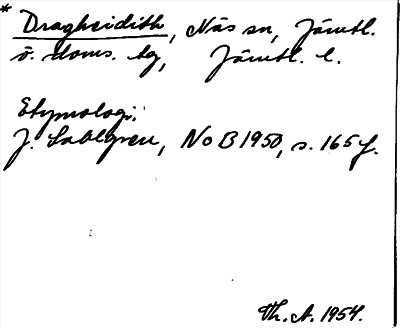 * Dragheidith, Näs sn, Jämtl.
ö. doms. tg, Jämtl. l.
Etymologi:
J. Sahlgren, NoB 1950, s. 165 f.
Th. A. 1954.